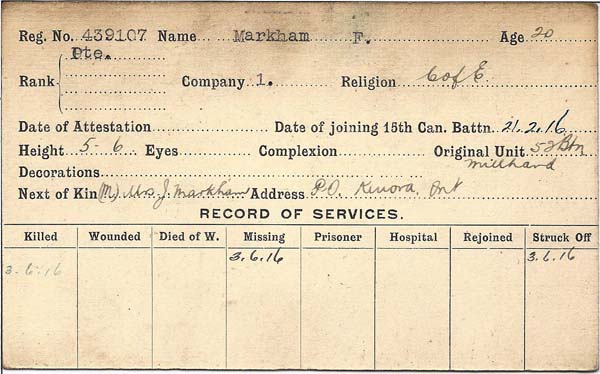 Reg. No. 439107 Name Markham F. Age 20
Pte.
Rank Company 1. Religion C of E.
Date of Attestation Date of joining 15th Can. Battn. 21.2.16
Height 5-6 Eyes Complexion Original Unit 52 Btn
Decorations millhand
Next of Kin (M) Mrs J. Markham Address P.O. Kenora, Ont
RECORD OF SERVICES.
Killed Wounded Died of W. Missing Prisoner Hospital Rejoined Struck Off
3.6.16 3.6.16 3.6.16